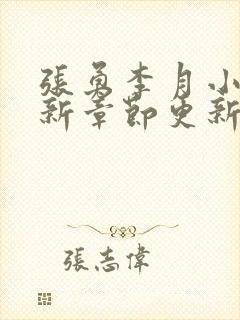 張勇李月小
新章節更新
張志偉